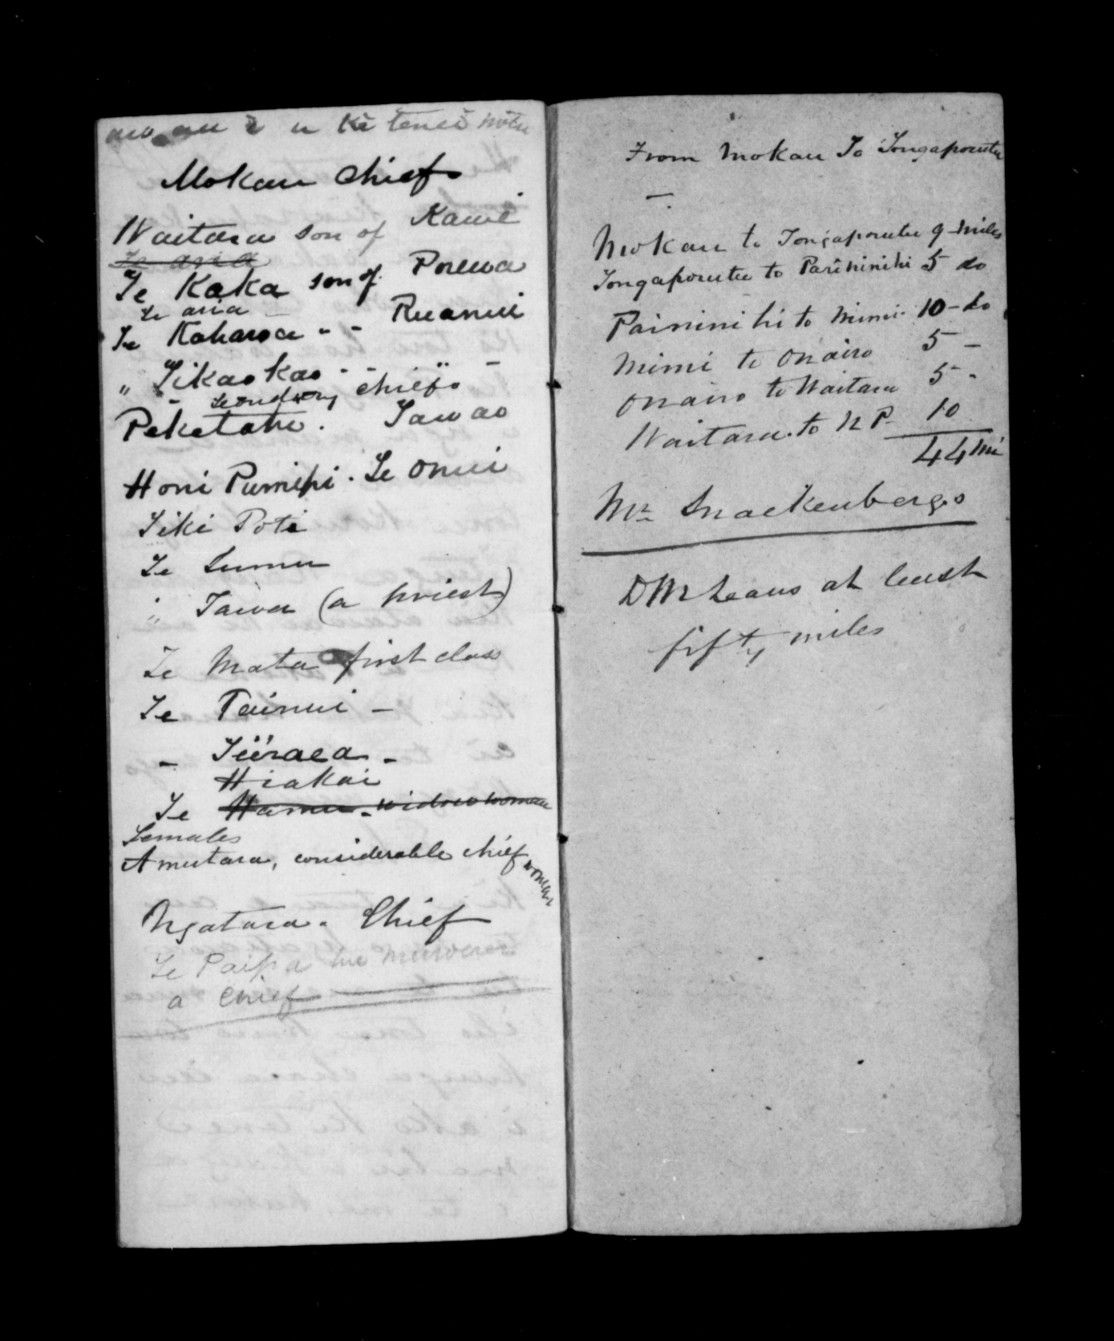 ki tenei motu
Mokau Chiefs
Waitara son of Kawe
Te aria
Te Kaka son of Porewa
Te aria Ruanui
Te Kaharoa " -
" Tikaokao - " -
Secondary Chiefs
Peketahi. Tawao
Honi Pumipi. Te Onui
Tiki Poti
Te Sumu
" Taiwa (a priest)
Te Mata first class
Te Tainui -
- Tiiraea -
Hiakai
Te Hamu - widow woman
Females
Amutara, considerable chief woman
Ngatara. Chief
Te Paipa
a Chief
From Mokau To Tongaporutu
-
Mokau to Tongaporutu 9 miles
Tongaporutu to Parininihi 5 do
Paininihi to Mimi. 10 - do
Mimi to Onairo 5 -
Onairo to Waitara 5 -
Waitara to N P. 10
44 mi
Mr Snackenbergs
D McLeans at least
fifty miles